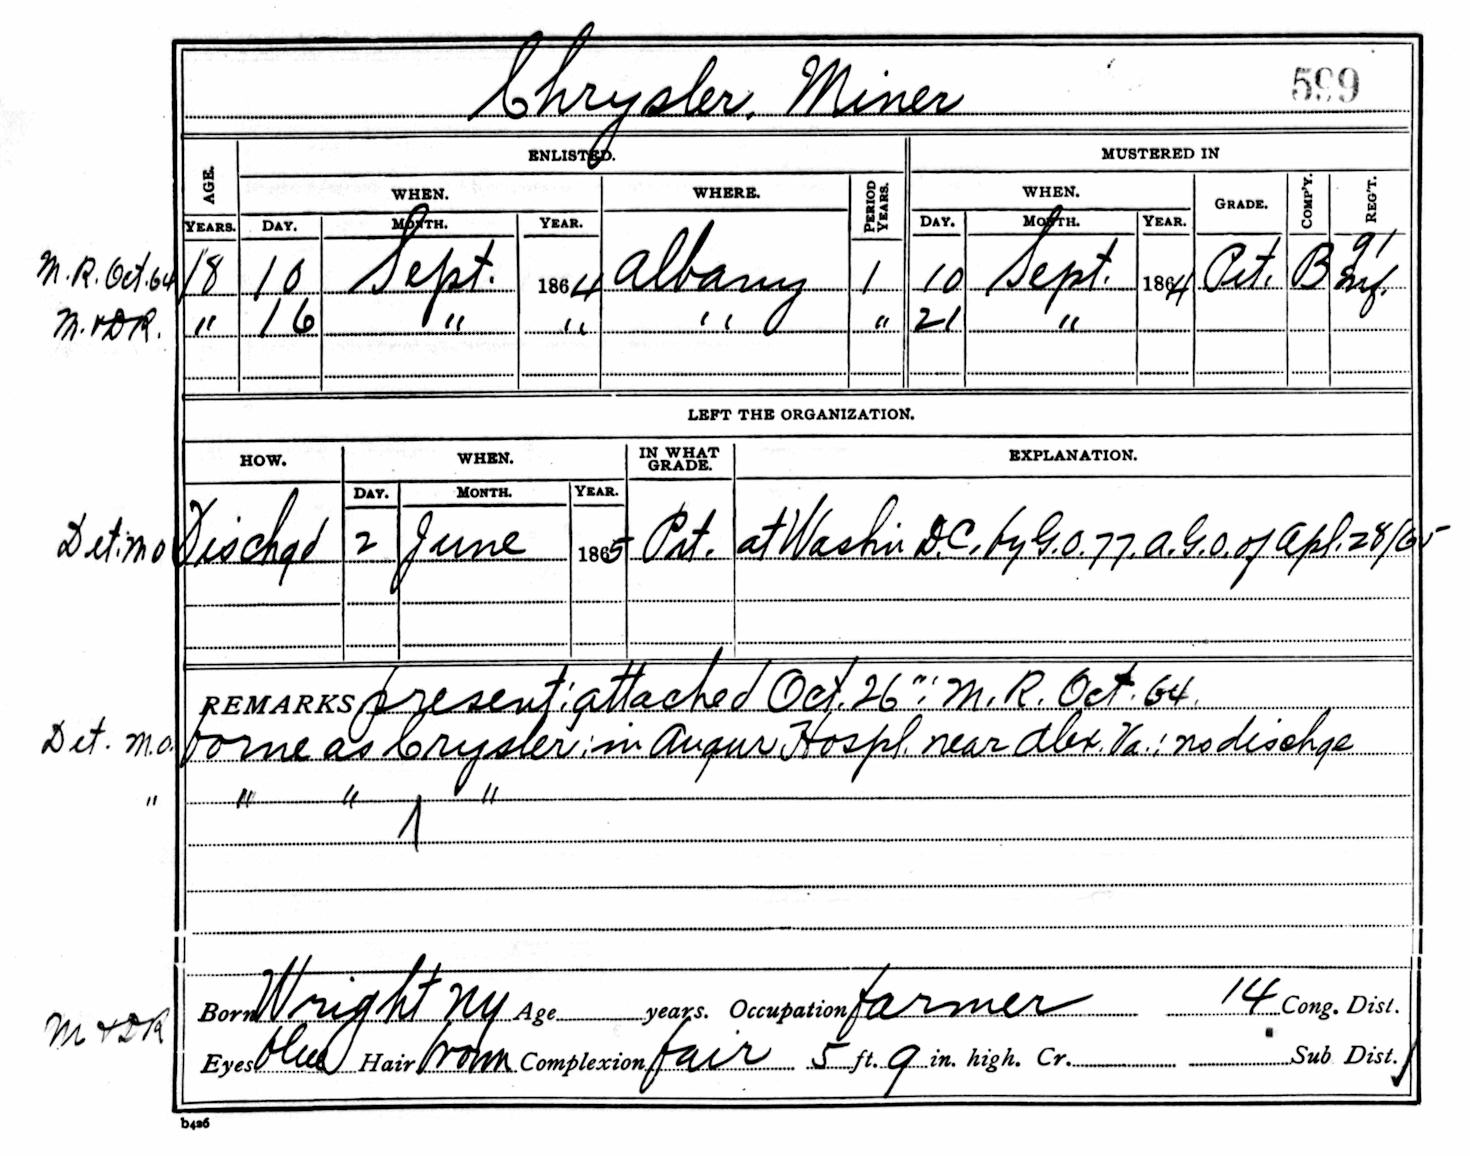 Chrysler, Miner 599
ENLISTED. MUSTERED IN
AGE. WHEN. WHERE. PERIOD YEARS. WHEN. GRADE. COMP'Y. REG'T.
YEARS. DAY. MONTH. YEAR. DAY. MONTH. YEAR.
M. R. Oct. 64 18 10 Sept. 1864 Albany 1 10 Sept. 1864 Pvt. B 91 Inf.
M. & D R. " 16 " " " " 21 "
LEFT THE ORGANIZATION.
HOW. WHEN. IN WHAT GRADE. EXPLANATION.
DAY. MONTH. YEAR.
Det. M O Dischgd 2 June 1865 Pvt. at Washn D.C. by G.O. 77. A.G.O. of Apl. 28/65
REMARKS present; attached Oct. 26"; M. R. Oct. 64.
Det. M.O. borne as Crysler; in Augur Hospl. near Alex. Va.; no dischge
" " " "
M & D R Born Wright NY Age years. Occupation farmer 14 Cong. Dist.
Eyes blue Hair brown Complexion fair 5 ft. 9 in. high. Cr. Sub Dist.
b426